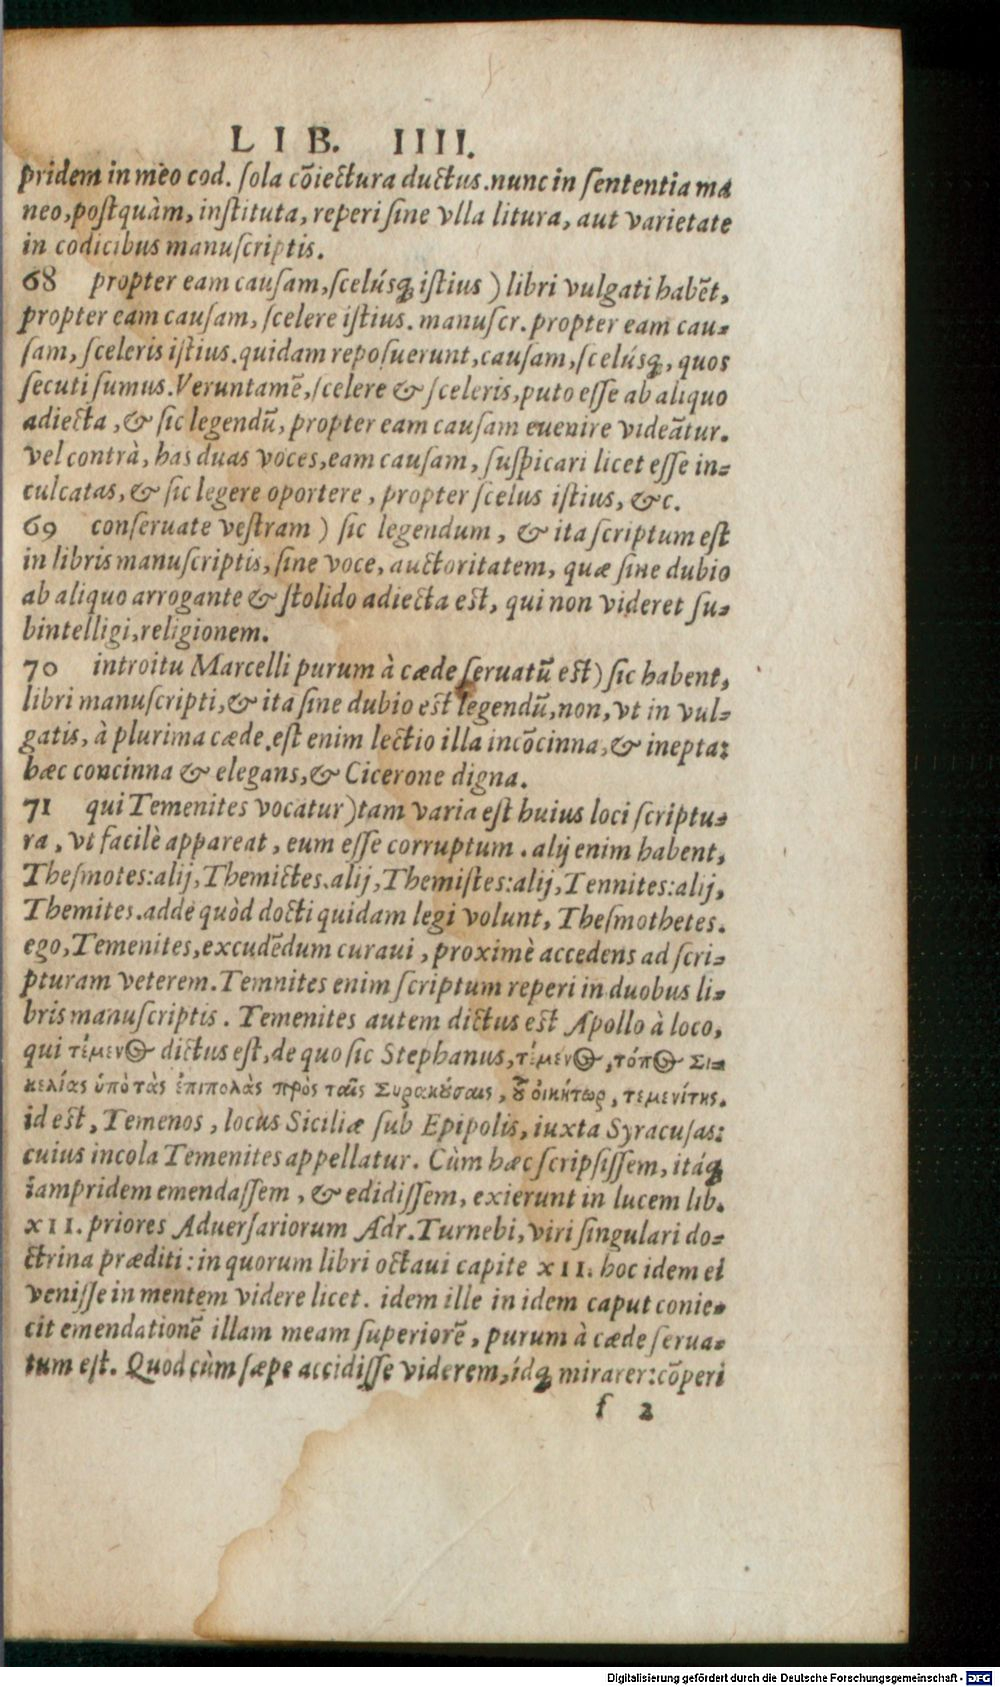 LIB. IIII.
pridem in meo cod. sola cõiectura ductus. nunc in sententia ma
neo, postquàm, instituta, reperi sine vlla litura, aut varietate
in codicibus manuscriptis.
68 propter eam causam, scelúsq; istius ) libri vulgati habẽt,
propter eam causam, scelere istius. manuscr. propter eam cau-
sam, sceleris istius. quidam reposuerunt, causam, scelúsq;, quos
secuti sumus. Veruntamẽ, scelere & sceleris, puto esse ab aliquo
adiecta, & sic legendũ, propter eam causam euenire videãtur.
vel contrà, has duas voces, eam causam, suspicari licet esse in-
culcatas, & sic legere oportere, propter scelus istius, &c.
69 conseruate vestram ) sic legendum, & ita scriptum est
in libris manuscriptis, sine voce, auctoritatem, quæ sine dubio
ab aliquo arrogante & stolido adiecta est, qui non videret su-
bintelligi, religionem.
70 introitu Marcelli purum à cæde seruatũ est) sic habent,
libri manuscripti, & ita sine dubio est legendũ, non, vt in vul-
gatis, à plurima cæde. est enim lectio illa incõcinna, & inepta:
hæc concinna & elegans, & Cicerone digna.
71 qui Temenites vocatur) tam varia est huius loci scriptu-
ra, vt facilè appareat, eum esse corruptum. alij enim habent,
Thesmotes: alij, Themictes. alij, Themistes: alij, Tennites: alij,
Themites. adde quòd docti quidam legi volunt, Thesmothetes.
ego, Temenites, excudẽdum curaui, proximè accedens ad scri-
pturam veterem. Temnites enim scriptum reperi in duobus li-
bris manuscriptis. Temenites autem dictus est Apollo à loco,
qui τέμενος dictus est, de quo sic Stephanus, τέμενος, τόπος Σι-
κελίας ὑπὸ τὰς ἐπιπολὰς πρὸς ταῖς Συρακούσαις, οὗ οἰκήτωρ, τεμενίτης.
id est, Temenos, locus Siciliæ sub Epipolis, iuxta Syracusas:
cuius incola Temenites appellatur. Cùm hæc scripsissem, itáq;
iampridem emendassem, & edidissem, exierunt in lucem lib.
XII. priores Aduersariorum Adr. Turnebi, viri singulari do-
ctrina præditi: in quorum libri octaui capite XII. hoc idem ei
venisse in mentem videre licet. idem ille in idem caput conie-
cit emendationẽ illam meam superiorẽ, purum à cæde serua-
tum est. Quod cùm sæpe accidisse viderem, ídq; mirarer: cõperi
f 2
Digitalisierung gefördert durch die Deutsche Forschungsgemeinschaft - DFG